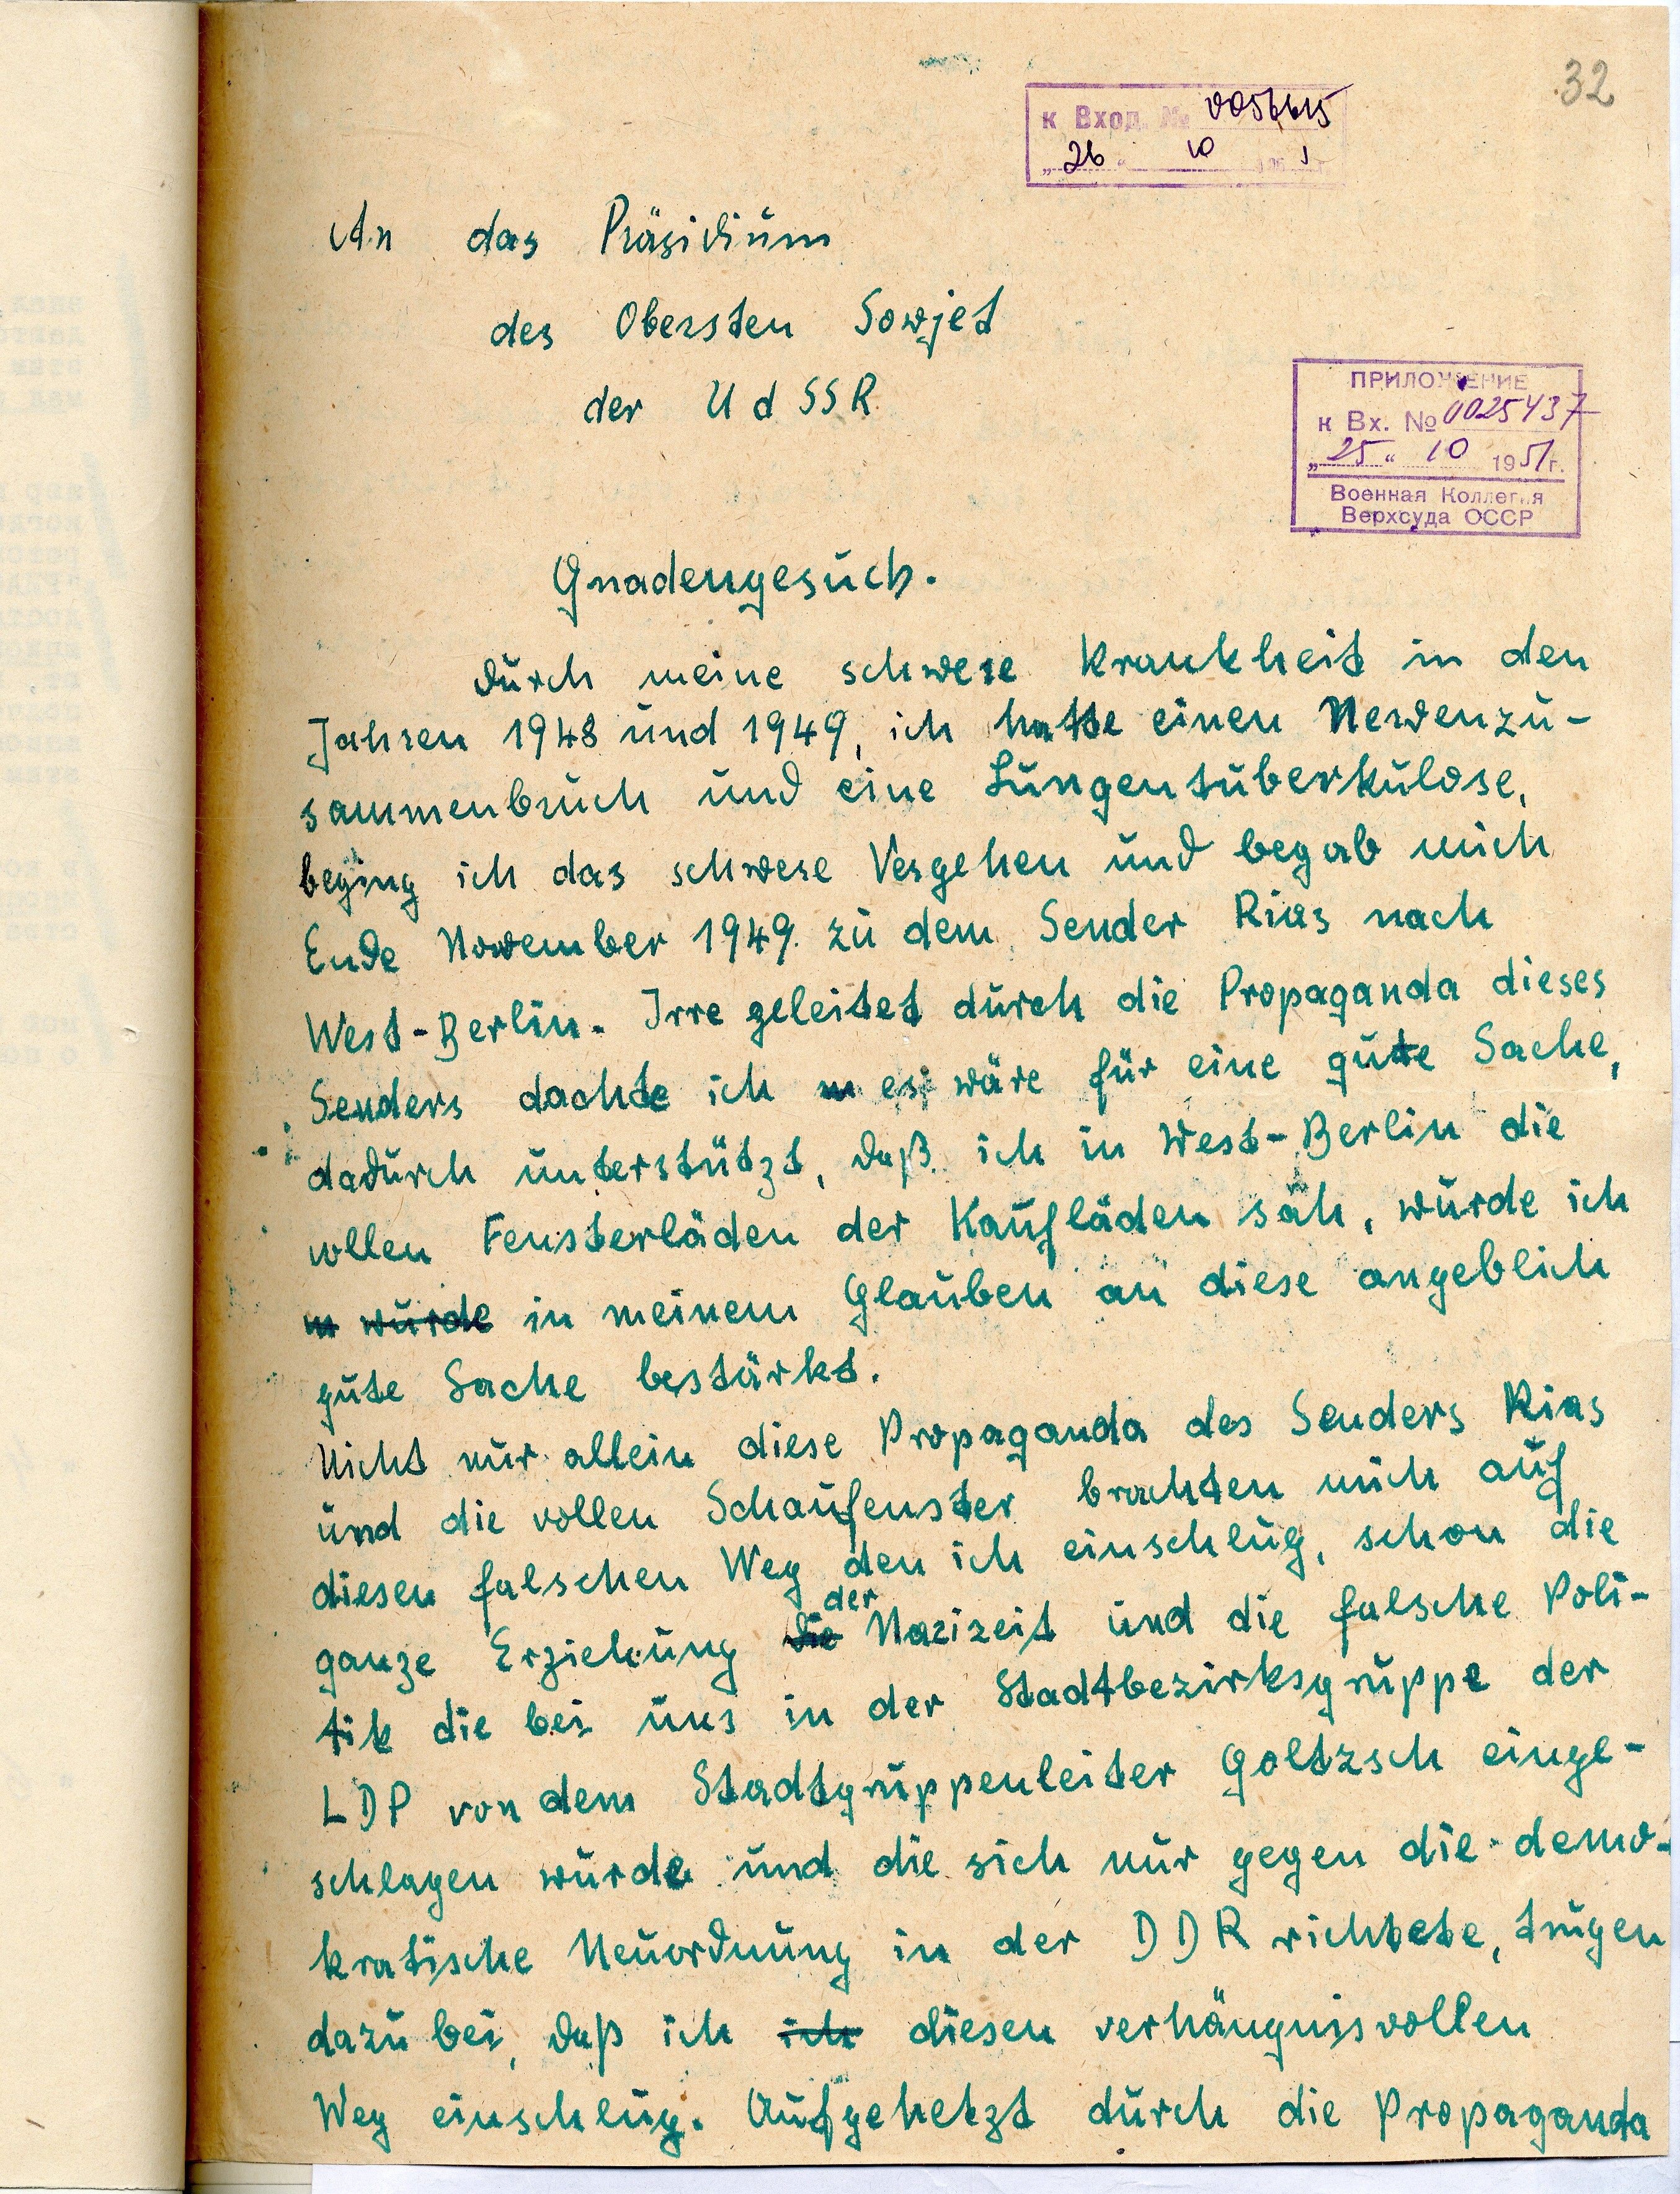 32
к Вход. №
"26" 10
An das Präsidium
des Obersten Sowjet
der UdSSR
ПРИЛОЖЕНИЕ
к Вх. № 0025437
"25" 10 1951г.
Военная Коллегия
Верхсуда СССР
Gnadengesuch.
Durch meine schwere Krankheit in den
Jahren 1948 und 1949, ich hatte einen Nervenzu-
sammenbruch und eine Lungentuberkulose,
beging ich das schwere Vergehen und begab mich
Ende November 1949 zu dem Sender Rias nach
West-Berlin. Irre geleitet durch die Propaganda dieses
Senders dachte ich es wäre für eine gute Sache,
dadurch unterstützt, daß ich in West-Berlin die
vollen Fensterläden der Kaufläden sah, wurde ich
wurde in meinem Glauben an diese angeblich
gute Sache bestärkt.
Nicht nur allein diese Propaganda des Senders Rias
und die vollen Schaufenster brachten mich auf
diesen falschen Weg den ich einschlug, schon die
ganze Erziehung die der Nazizeit und die falsche Poli-
tik die bei uns in der Stadtbezirksgruppe der
LDP von dem Stadtgruppenleiter Goltzsch einge-
schlagen wurde und die sich nur gegen die demo-
kratische Neuordnung in der DDR richtete, trugen
dazu bei, daß ich ich diesen verhängnissvollen
Weg einschlug. Aufgehetzt durch die Propaganda